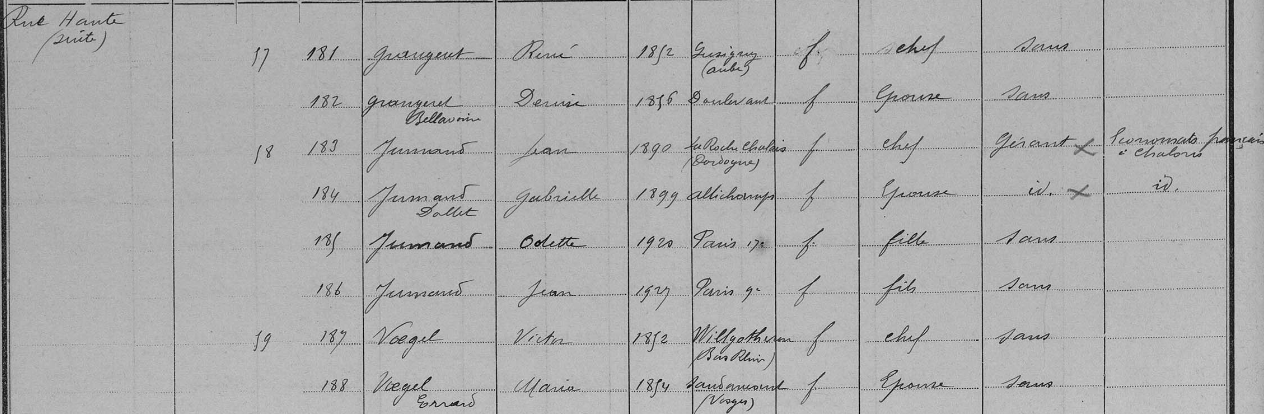 Rue Haute
(suite)
57 181 Grangeret René 1852 f chef sans
(Aube)
182 Grangeret Denise 1856 Doulevant f Epouse sans
Bellavoine
58 183 Jumand Jean 1890 La Roche Chalais f chef Gérant x Economats français
(Dordogne) à Chalons
184 Jumand Gabrielle 1899 Allichamps f Epouse id. x id.
Dallet
185 Jumand Odette 1920 Paris 17e f fille sans
186 Jumand Jean 1927 Paris 9e f fils sans
59 187 Vœgel Victor 1852 f chef sans
(Bas Rhin)
188 Vœgel Maria 1854 f Epouse sans
Errard (Vosges)